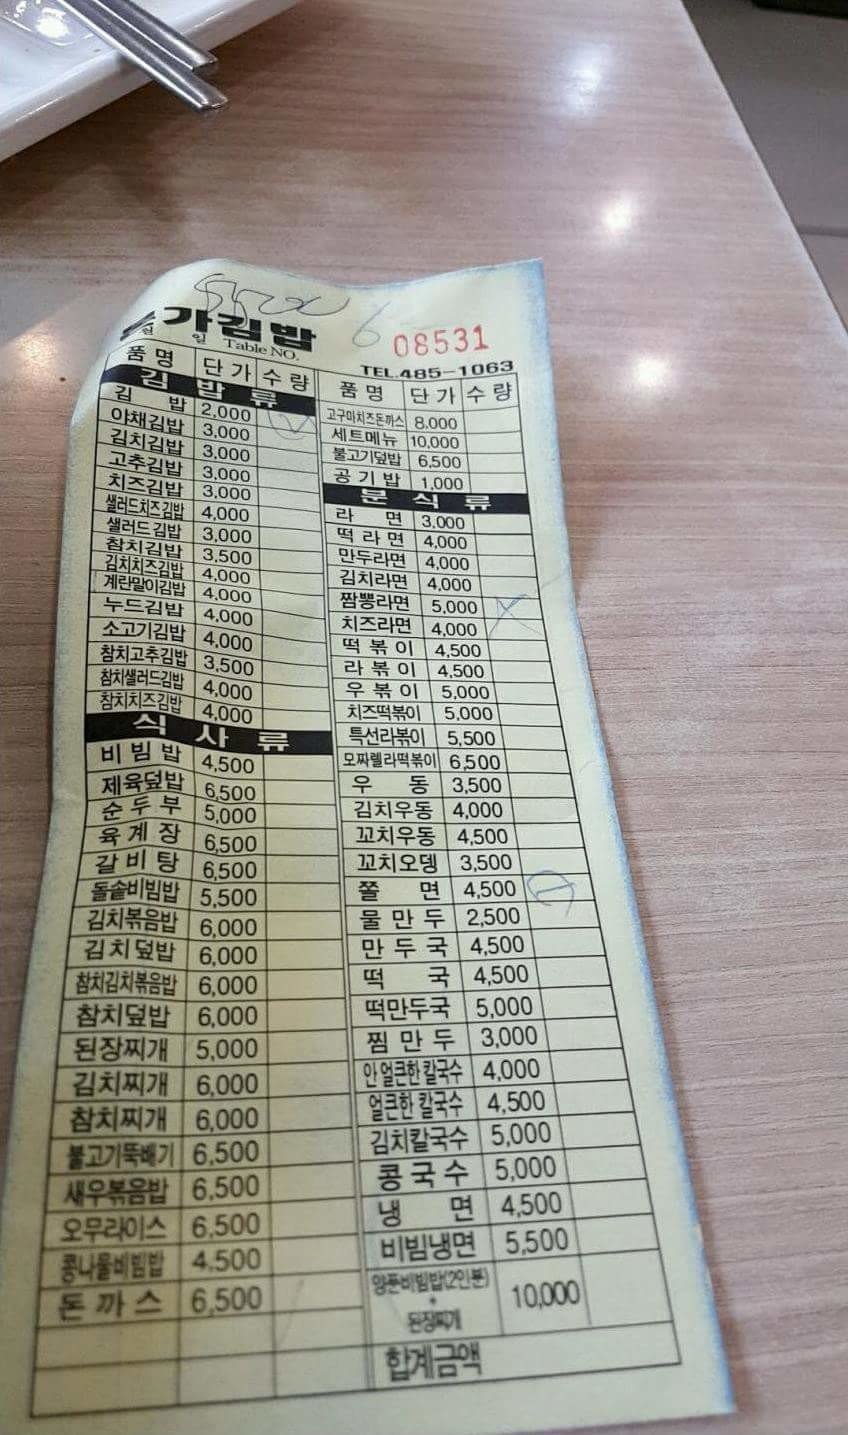 가김밥
08531
일 Table NO.
TEL.485-1063
품명 단가 수량
김밥류
김밥 2,000
야채김밥 3,000
김치김밥 3,000
고추김밥 3,000
치즈김밥 3,000
샐러드치즈김밥 4,000
샐러드김밥 3,000
참치김밥 3,500
김치치즈김밥 4,000
계란말이김밥 4,000
누드김밥 4,000
소고기김밥 4,000
참치고추김밥 3,500
참치샐러드김밥 4,000
참치치즈김밥 4,000
식사류
비빔밥 4,500
제육덮밥 6,500
순두부 5,000
육계장 6,500
갈비탕 6,500
돌솥비빔밥 5,500
김치볶음밥 6,000
김치덮밥 6,000
참치김치볶음밥 6,000
참치덮밥 6,000
된장찌개 5,000
김치찌개 6,000
참치찌개 6,000
불고기뚝배기 6,500
새우볶음밥 6,500
오무라이스 6,500
콩나물비빔밥 4,500
돈까스 6,500
품명 단가 수량
고구마치즈돈까스 8,000
세트메뉴 10,000
불고기덮밥 6,500
공기밥 1,000
분식류
라면 3,000
떡라면 4,000
만두라면 4,000
김치라면 4,000
짬뽕라면 5,000
치즈라면 4,000
떡볶이 4,500
라볶이 4,500
우볶이 5,000
치즈떡볶이 5,000
특선라볶이 5,500
모짜렐라떡볶이 6,500
우동 3,500
김치우동 4,000
꼬치우동 4,500
꼬치오뎅 3,500
쫄면 4,500
물만두 2,500
만두국 4,500
떡국 4,500
떡만두국 5,000
찜만두 3,000
안얼큰한칼국수 4,000
얼큰한칼국수 4,500
김치칼국수 5,000
콩국수 5,000
냉면 4,500
비빔냉면 5,500
양푼비빔밥(2인분)
+ 10,000
된장찌개
합계금액